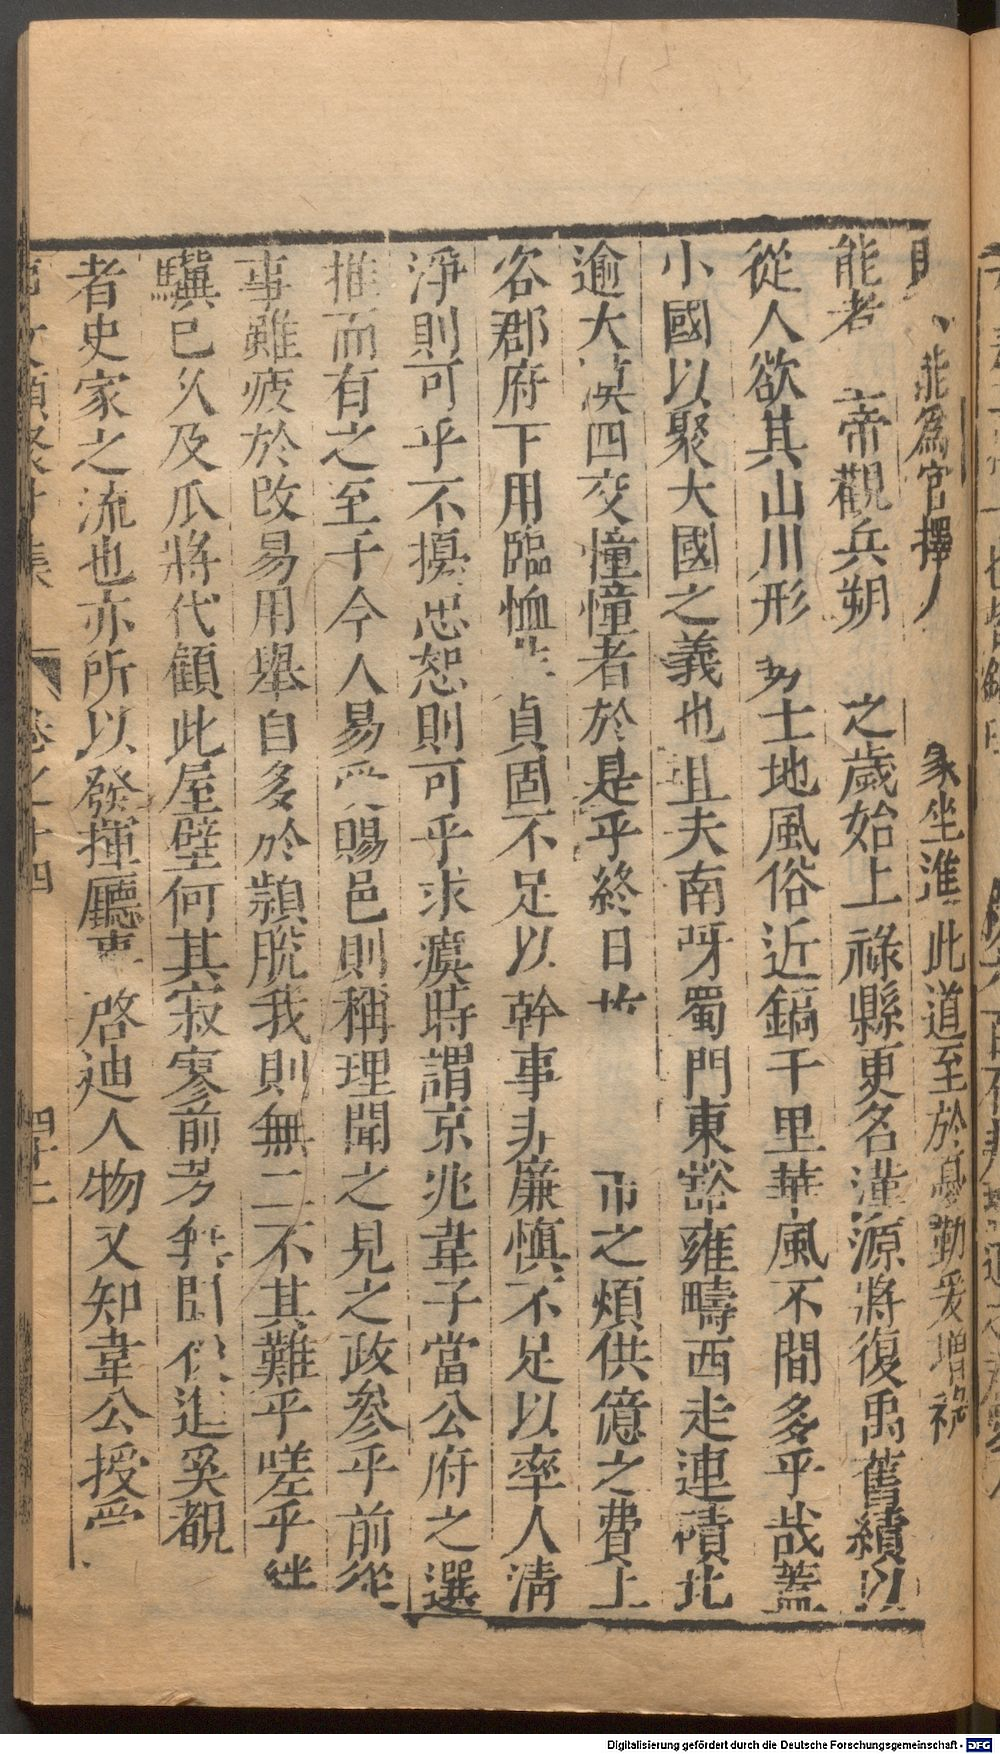 能爲官擇人 象坐進此道至於憂勤爰增祿
能者 帝觀兵朔 之歲始上祿縣更名漢源將復禹舊續以
從人欲其山川形 土地風俗近鎬千里華風不間多乎哉蓋
小國以聚大國之義也且夫南呀蜀門東豁雍疇西走連磧北
逾大漠四交憧憧者於是乎終日 市之煩供億之費上
咨郡府下用臨恤 貞固不足以幹事非廉慎不足以率人清
淨則可乎不擾忠恕則可乎求瘼時謂京兆韋子當公府之選
推而有之至于今人易受賜邑則稱理聞之見之政參乎前從
事雖疲於改易用舉自多於潁脫我則無二不其難乎嗟乎絆
驥已久及瓜將代顧此屋壁何其寂寥前考 進奚覩
者史家之流也亦所以發揮廳事啓迪人物又知韋公授受
事文類聚 集 卷之十四 四十二
Digitalisierung gefördert durch die Deutsche Forschungsgemeinschaft - DFG